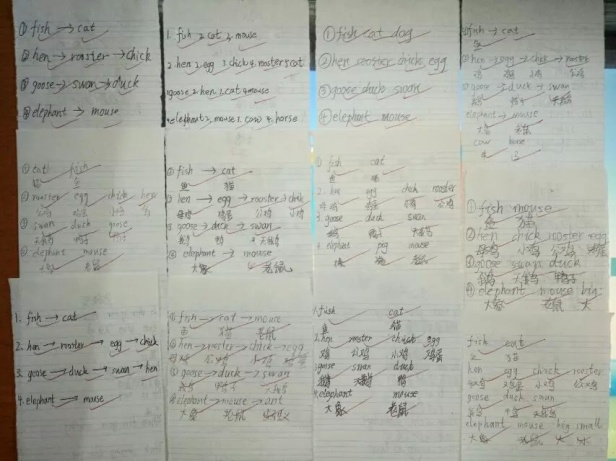 ① fish → cat
② hen → rooster → chick
③ goose → swan → duck
④ elephant → mouse
1. fish 2. cat 3. mouse
2. hen 2. egg 3. chick 4. rooster 5. cat
goose 2. hen 3. cat 4. mouse
elephant 2. mouse 3. cow 4. horse
① fish cat dog
② hen rooster chick egg
③ goose duck swan
④ elephant mouse
fish → cat
鱼
hen → egg → chick → rooster
goose → duck → swan
elephant → mouse
大象 老鼠
cow
cat fish
rooster egg chick hen
swan duck goose
elephant mouse
大象 老鼠
① fish → cat
鱼 猫
② hen → egg → rooster → chick
母鸡 鸡蛋 公鸡 小鸡
goose → duck → swan
鹅 鸭子 天鹅
④ elephant → mouse
大象 老鼠
① fish cat
鱼 猫
2. hen egg chick rooster
3. goose duck swan
4. elephant pig mouse
① fish mouse
鱼 猫
② hen chick rooster egg
母鸡 小鸡 公鸡
③ goose swan duck
鹅 天鹅 鸭子
④ elephant mouse big
大象 老鼠 大
1. fish → cat
2. hen → rooster → egg → chick
3. goose → duck → swan → hen
4. elephant → mouse
fish → cat → mouse
鱼 猫 老鼠
hen → rooster → chick → egg
goose → duck → swan
elephant → mouse → ant
大象 老鼠
1. fish cat
鱼 猫
2. hen rooster chick egg
鸡 公鸡 小鸡 鸡蛋
goose swan duck
鹅 天鹅 鸭
4. elephant mouse
大象 老鼠
fish cat
猫
hen egg chick rooster
goose duck swan
elephant mouse big small
大象 老鼠 大 小